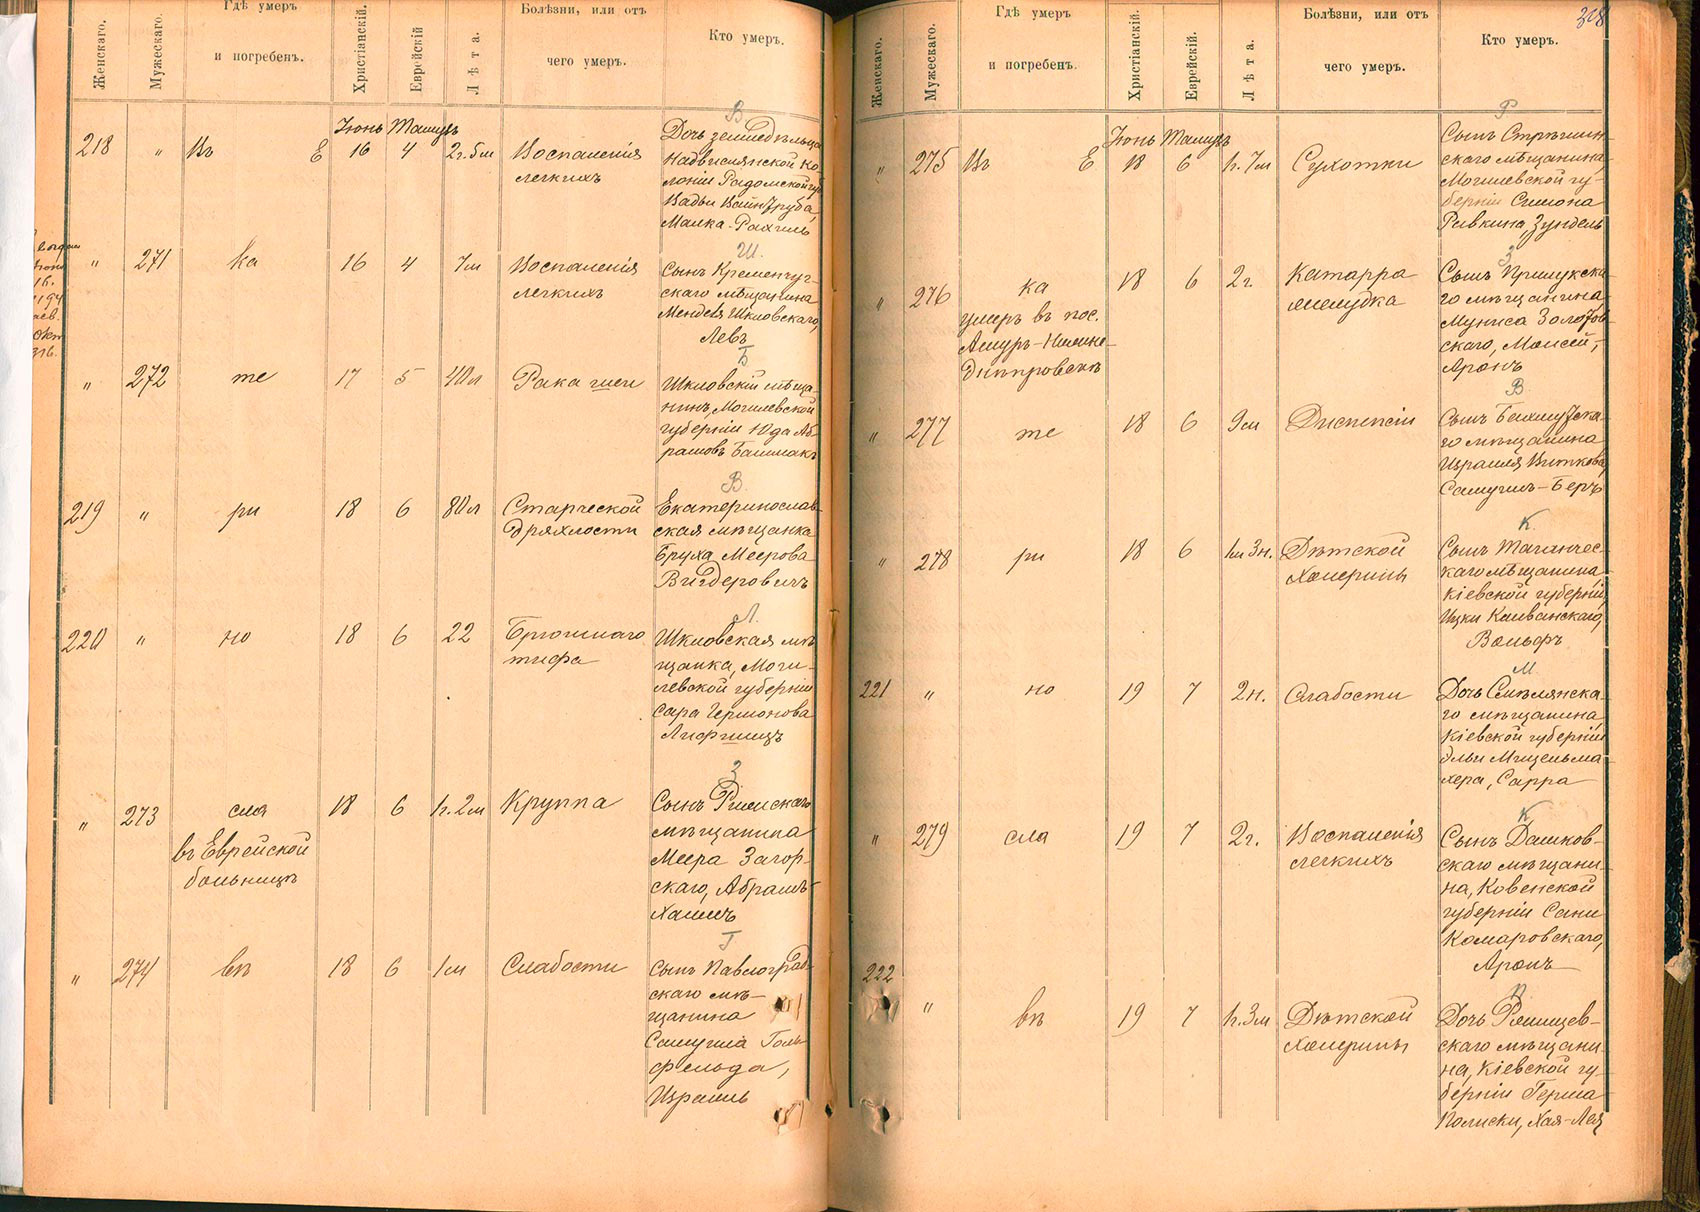 Женскаго.
Мужескаго.
Гдѣ умеръ
и погребенъ.
Христіанскій.
Еврейскій
Лѣта.
Болѣзни, или отъ
чего умеръ.
Кто умеръ.
Іюнь Тамузъ
218 " Въ Е 16 4 2г. 5м Воспаленія
легкихъ
В
Дочь земледѣльца
Надвислянской ко-
лоніи Радомской гу
Малка-Рахиль
" 271 ка 16 4 7м Воспаленія
легкихъ
Ш.
Сынъ Кременчуг-
скаго мѣщанина
Менделя Шкловскаго,
Левъ
" 272 те 17 5 40л Рака шеи
Б
Шкловскій мѣща
нинъ, Могилевской
губерніи Юда Аб-
рамовъ Башмакъ
219 " ри 18 6 80л Старческой
дряхлости
В.
Екатеринослав-
ская мѣщанка
Бруха Меерова
Вигдеровичъ
220 " но 18 6 22 Брюшнаго
тифа
Л.
Шкловская мѣ
щанка, Моги-
левской губерніи
Сара Гермонова
Лифшицъ
" 273 сла 18 6 1г. 2м Круппа
въ Еврейской
больницѣ
З
Сынъ Ряжскаго
мѣщанина
Меера Загор-
скаго, Абрамъ-
Хаимъ
" 274 вѣ 18 6 1м Слабости
Г
Сынъ Павлоград-
скаго мѣ-
щанина
Самуила Голь
фельда,
Израиль
318
Женскаго.
Мужескаго.
Гдѣ умеръ
и погребенъ.
Христіанскій.
Еврейскій.
Лѣта.
Болѣзни, или отъ
чего умеръ.
Кто умеръ.
Іюнь Тамузъ
" 275 Въ Е 18 6 1г. 7м Сухотки
Р
Сынъ Стрѣшин-
скаго мѣщанина,
Могилевской гу-
берніи Симона
Ривкина, Зундель
" 276 ка 18 6 2г. Катарра
желудка
умеръ въ пос.
Амуръ-Нижне-
днѣпровскѣ
З
Сынъ Прилукска-
го мѣщанина
Муниса Золотов-
скаго, Моисей-
Аронъ
" 277 те 18 6 9м Диспепсіи
В
Сынъ Бахмутска-
го мѣщанина
Израиля Виткова,
Самуилъ-Беръ
" 278 ри 18 6 1м 3н. Дѣтской
холерины
К.
Сынъ Таганчес-
каго мѣщанина,
Кіевской губерніи,
Ицки Каиванскаго,
Вольфъ
221 " но 19 7 2н. Слабости
М
Дочь Смѣлянска-
го мѣщанина,
Кіевской губерніи
Эльи Мицельма-
хера, Сарра
" 279 сла 19 7 2г. Воспаленія
легкихъ
К
Сынъ Дашков-
скаго мѣщани-
на, Ковенской
губерніи Сани
Комаровскаго,
Аронъ
222
" вѣ 19 7 1г. 3м Дѣтской
холерины
П.
Дочь Ржищев-
скаго мѣщани-
на, Кіевской гу-
берніи Герша
Полиски, Хая-Лея